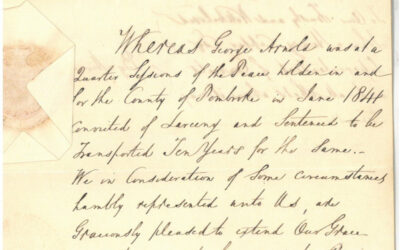 Whereas George Arnold was at a
Quarter Sessions of the Peace holden in and
for the County of Pembroke in June 1844
Convicted of Larceny and Sentenced to be
Transported Ten Years for the Same.—
We in Consideration of Some circumstances
humbly represented unto Us, are
Graciously pleased to extend Our Grace